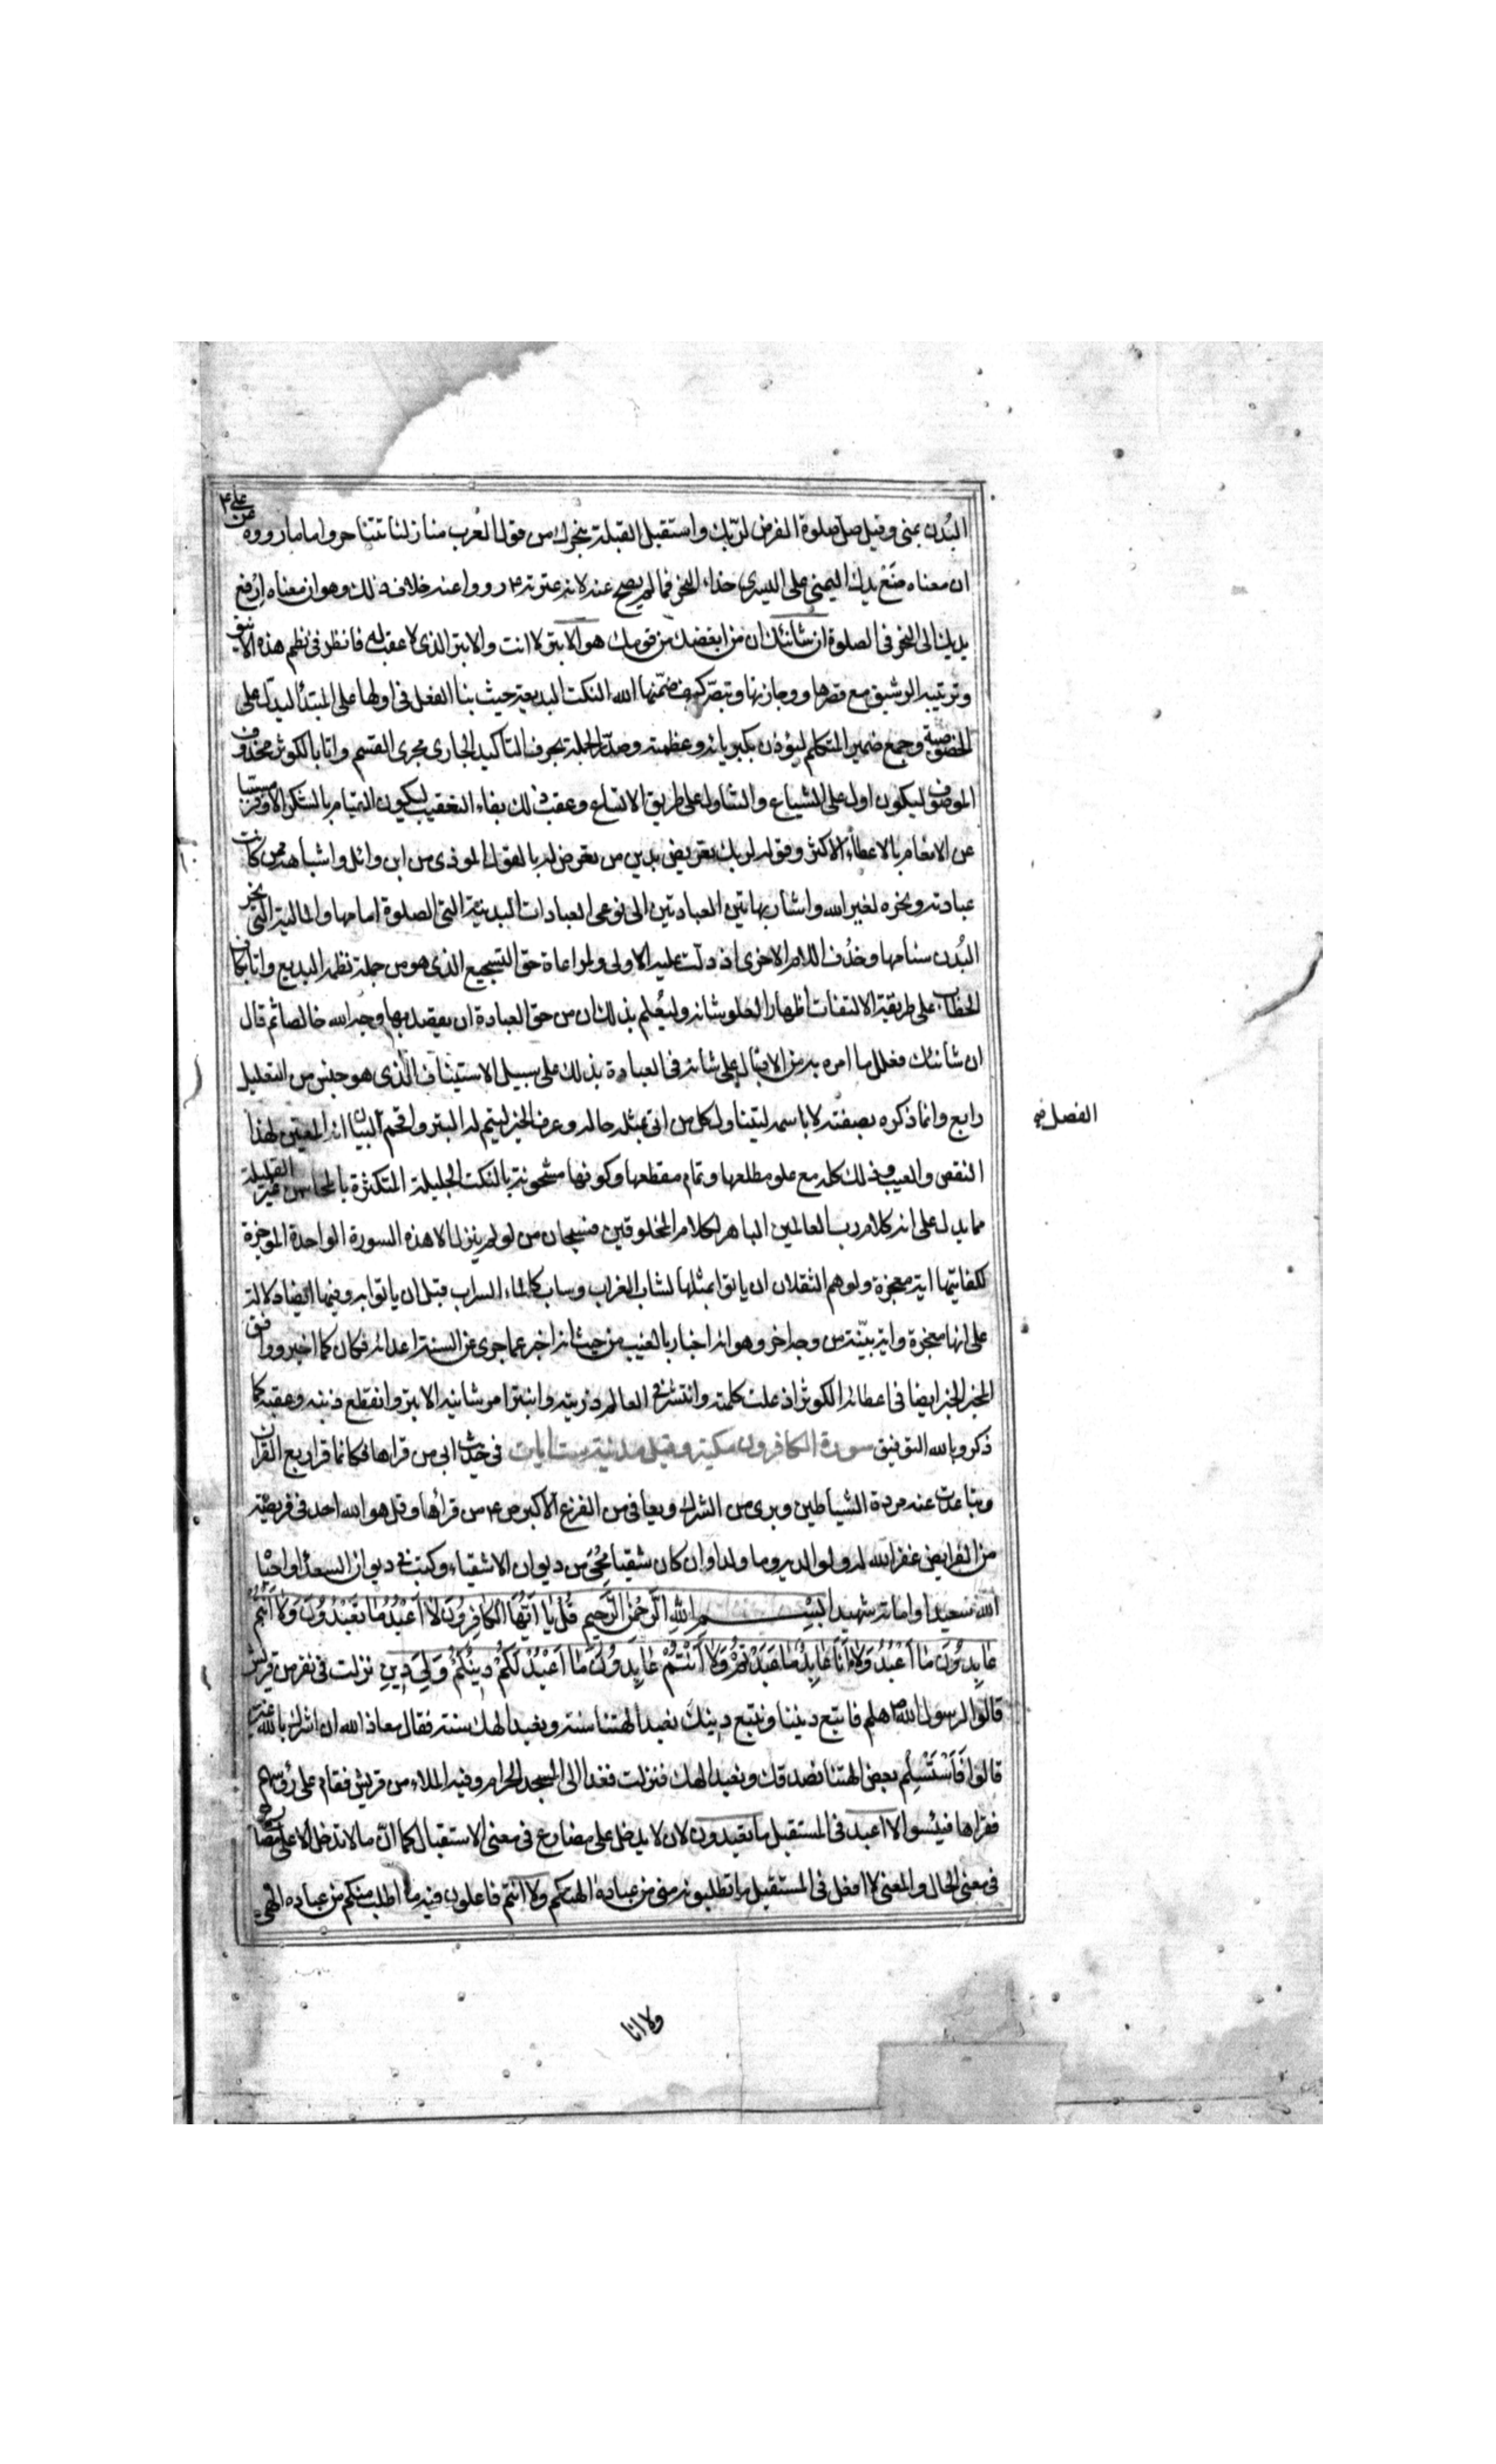 البُدن بمنى وقيل صل صلوة الفرض لربّك واستقبل القبلة بنحرك من قول العرب منازلنا تتناحر واما ما رووه عن علي ٤
ان معناه ضَعْ يدك اليمنى على اليسرى حذاء النحر فما لم يصح عنه لان عترته ٤ رووا عنه خلاف ذلك وهو ان معناه ارفع
يديك الى النحر في الصلوة ان شانئك ان من ابغضك من قومك هو الابتر لا انت والابتر الذي لا عقب له فانظر في نظم هذه الانيق
وترتيبه الرشيق مع قصرها ووجازتها وتبصّر كيف ضمّنها الله النكت البديعة حيث بنا الفعل في اولها على المبتدأ ليدل على
الخصوصية وجمع ضمير المتكلم ليؤذن بكبريائه وعظمته وصدّر الجملة بحرف التاكيد الجارى مجرى القسم واتا بالكوثر محذوف
الموصوف ليكون اول على الشياع والتناول على طريق الاتساع وعقب ذلك بفاء التعقيب ليكون القيام بالشكر الاوفر مسببا
عن الانعام بالاعطاء الاكثر وقوله لربك تعريض بدين من تعرض له بالقول الموذى من ابن وائل واشباهه ممن كانت
عبادته ونحره لغير الله واشار بهاتين العبادتين الى نوعى العبادات البدنيّة التى الصلوة امامها والمالية التى نحر
البُدن سنامها وحذف اللام الاخرى اذ دلّت عليه الاولى ولمراعاة حق التسجيع الذى هو من جملة نظمه البديع واتا بكاف
الخطاب على طريقة الالتفات اظهارا لعلو شانه وليُعلم بذلك ان من حق العبادة ان يقصد بها وجه الله خالصا ثم قال
ان شانئك فعلل ما امره به من الاقبال على شانه في العبادة بذلك على سبيل الاستيناف الّذى هو جنس من التعليل
رابع وانما ذكره بصفته لا باسمه ليتناول كل من اتى بمثل حاله وعرف الخبر ليتم له البتر واقحم البيان انه المعين لهذا
الفصل فيه
النقص والعيب وذلك كله مع علو مطلعها وتمام مقطعها وكونها مشحونة بالنكت الجليلة المتكثرة بالمحاسن غير القليلة
مما يدل على انه كلام رب العالمين الباهر لكلام المخلوقين فسبحان من لو لم ينزل الا هذه السورة الواحدة الموجزة
لكفابها اية معجزة ولو هم الثقلان ان ياتوا بمثلها لشاب الغراب وساب كالماء السراب قبل ان ياتوا به وفيها ايضا دلالة
على انها معجزة واية بيّنة من وجه اخر وهو انه اخبار بالغيب من حيث انه اخبر عما جرى على السنة اعدائه فكان كما اخبر ووافق
الخبر الخبر ايضا في اعطائه الكوثر اذ علت كلمته وانتشر في العالم ذريته وانبتر امر شانيه الابتر وانقطع ذنبه وعقبه كما
ذكر وبالله التوفيق سورة الكافرون مكية وقيل مدنية ست ايات في حديث ابى من قراها فكانما قرا ربع القران
وتباعدت عنه مردة الشياطين وبرى من الشرك ويعافى من الفزع الاكبر ص ٤ من قرأها وقل هو الله احد في فريضة
من الفرايض غفر الله له ولوالديه وما ولدا وان كان شقيا مُحِىَ من ديوان الاشقياء وكتب في ديوان السعداء واحياه
الله سعيدا واماته شهيدا بِسْمِ اللهِ الرَّحْمٰنِ الرَّحِيمِ قُلْ يٰا اَيُّهَا الْكٰافِرُونَ لٰا اَعْبُدُ مٰا تَعْبُدُونَ وَلٰا اَنْتُمْ
عٰابِدُونَ مٰا اَعْبُدُ وَلٰا اَنَا عٰابِدٌ مٰا عَبَدْتُمْ وَلٰا اَنْتُمْ عٰابِدُونَ مٰا اَعْبُدُ لَكُمْ دِينُكُمْ وَلِيَ دِينِ نزلت في نفر من قريش
قالوا لرسول الله ص هلم فاتبع ديننا ونتبع دينك تعبد الهتنا سنة ونعبد الهك سنة فقال معاذ الله ان اشرك بالله غيره
قالوا فَاسْتَسْلِم بعض الهتنا نصدقك ونعبد الهك فنزلت فغدا الى المسجد الحرام وفيه الملاء من قريش فقام على رؤسهم
فقراها فيئسوا لا اعبد في المستقبل ما تعبدون لان لا لا يدخل على مضارع في معنى الاستقبال كما انّ ما لا تدخل الا على مضارع
في معنى الحال والمعنى لا افعل في المستقبل ما تطلبونه منى من عبادة الهتكم ولا انتم فاعلون فيه ما اطلب منكم من عبادة الهى
ولا انا